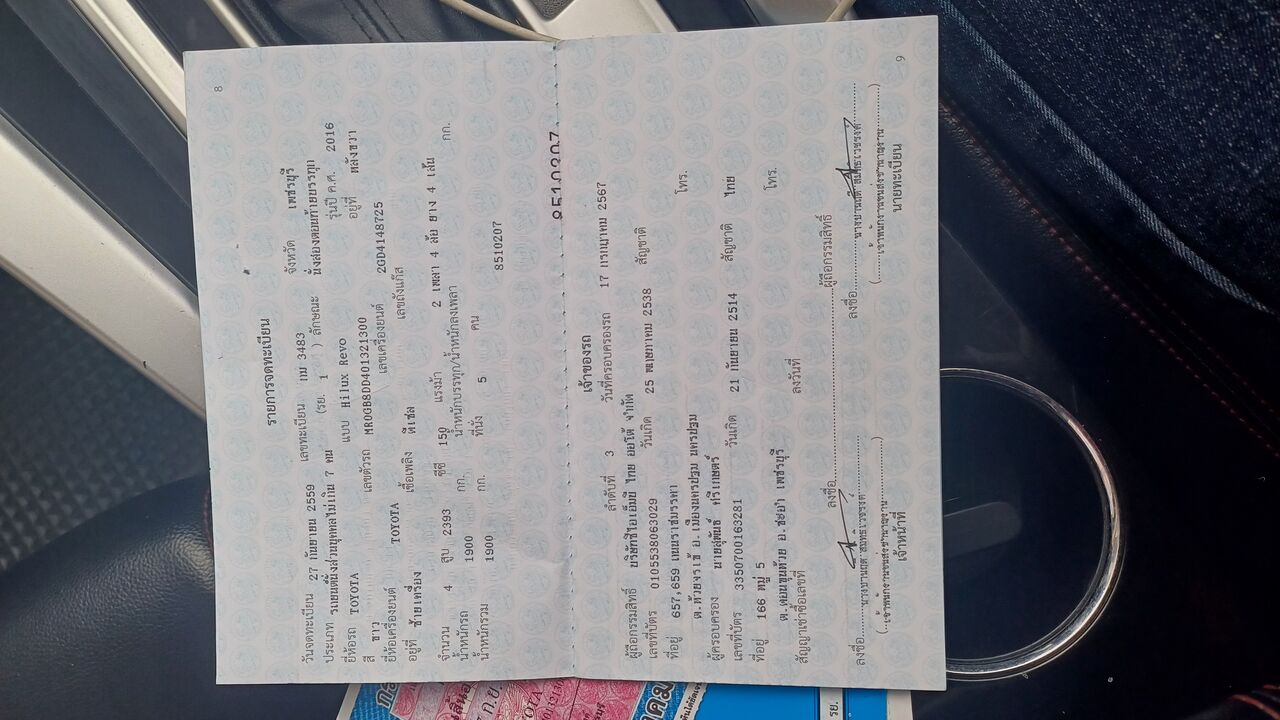 8
รายการจดทะเบียน
วันจดทะเบียน 27 กันยายน 2559 เลขทะเบียน 3483 จังหวัด เพชรบุรี
ประเภท รถยนต์นั่งส่วนบุคคลไม่เกิน 7 คน (รย. 1 ) ลักษณะ นั่งสองตอนท้ายบรรทุก
ยี่ห้อรถ TOYOTA แบบ Hilux Revo รุ่นปี ค.ศ. 2016
สี ขาว เลขตัวรถ MR0GB8DD401321300 อยู่ที่ หลังขวา
ยี่ห้อเครื่องยนต์ TOYOTA เลขเครื่องยนต์ 2GD4148725
อยู่ที่ ซ้ายเครื่อง เชื้อเพลิง ดีเซล เลขถังแก๊ส
จำนวน 4 สูบ 2393 ซีซี 150 แรงม้า 2 เพลา 4 ล้อ ยาง 4 เส้น
น้ำหนักรถ 1900 กก. น้ำหนักบรรทุก/น้ำหนักลงเพลา กก.
น้ำหนักรวม 1900 กก. ที่นั่ง 5 คน
8510207
8510207
เจ้าของรถ
ลำดับที่ 3 วันที่ครอบครองรถ 17 มกราคม 2567
ผู้ถือกรรมสิทธิ์ ไทย ออโต้ จำกัด
เลขที่บัตร 0105538063029 วันเกิด 25 พฤษภาคม 2538 สัญชาติ
ที่อยู่ 657,659 โทร.
ต.ห้วยจรเข้ อ.เมืองนครปฐม นครปฐม
ผู้ครอบครอง ศรีเกษตร์
เลขที่บัตร 3350700163281 วันเกิด 21 กันยายน 2514 สัญชาติ ไทย
ที่อยู่ 166 หมู่ 5 โทร.
ต.ดอนขุนห้วย อ.ชะอำ เพชรบุรี
สัญญาเช่าซื้อเลขที่ ลงวันที่
ลงชื่อ ผู้ถือกรรมสิทธิ์
ลงชื่อ ลงชื่อ
(เจ้าพนักงานขนส่งชำนาญงาน) (เจ้าพนักงานขนส่งชำนาญงาน)
เจ้าหน้าที่ นายทะเบียน
9
TOYOTA
รย.